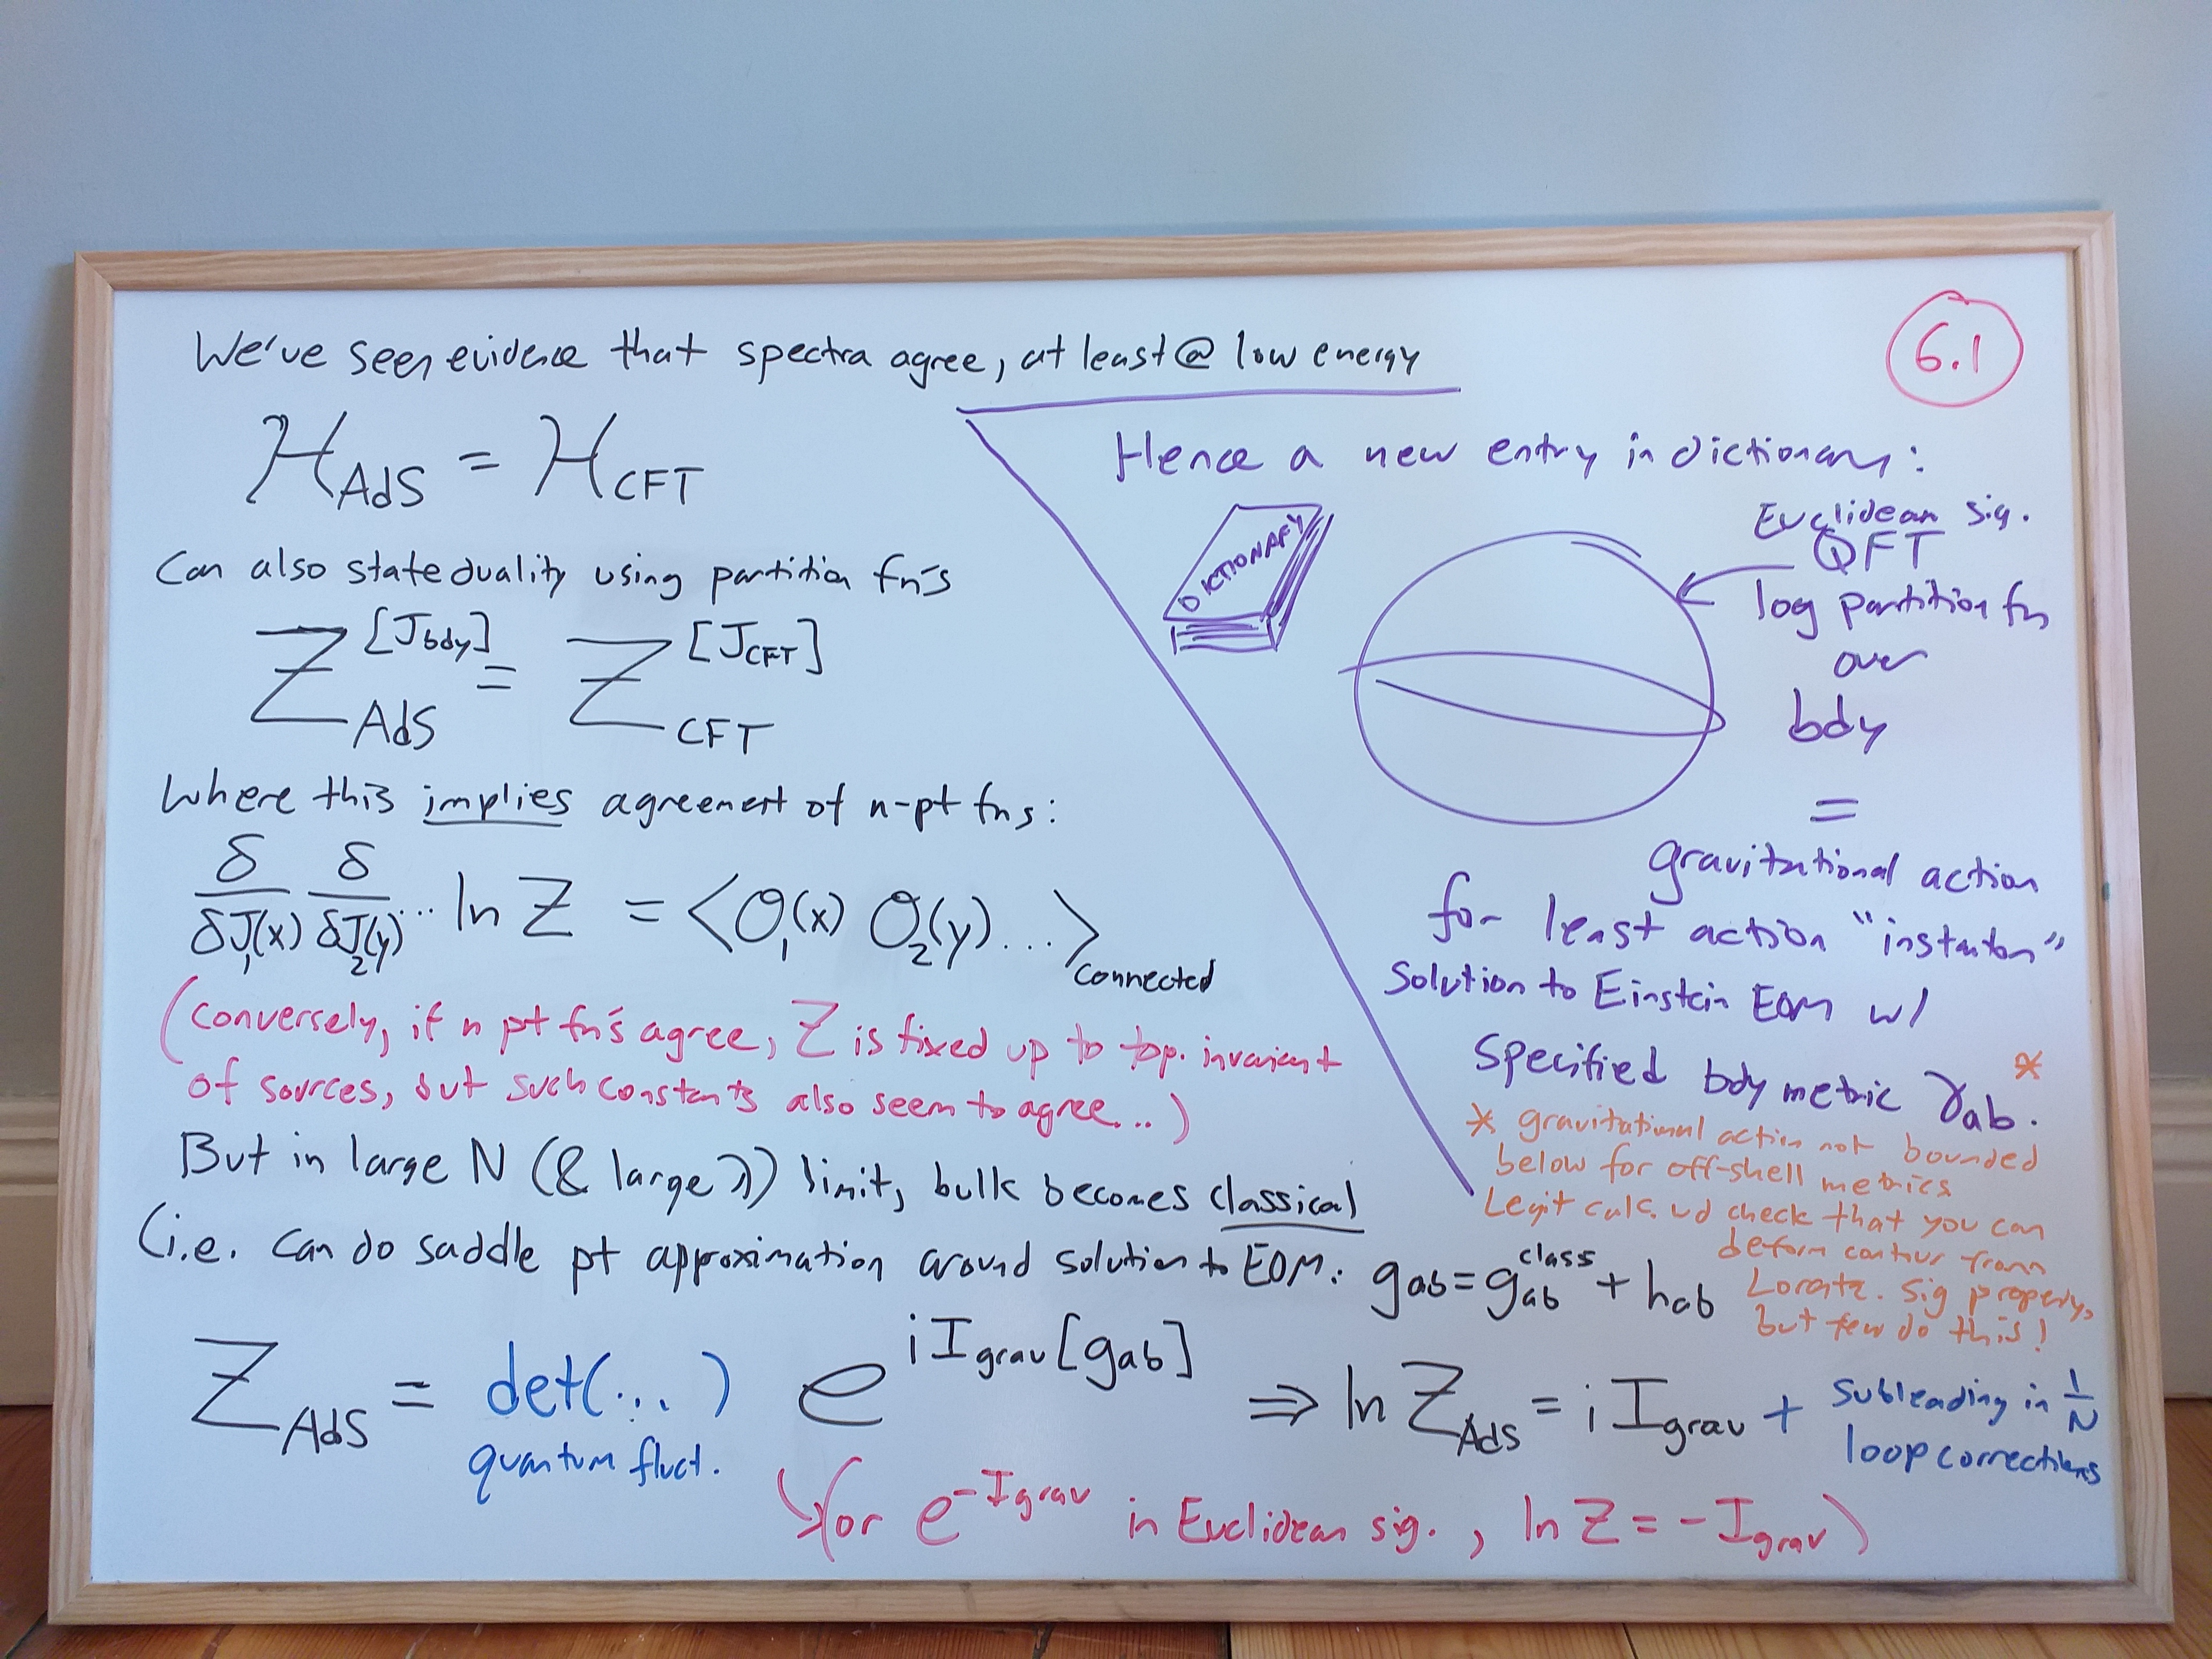 We've seen evidence that spectra agree, at least @ low energy
6.1
H_AdS = H_CFT
Can also state duality using partition fn's
Z_AdS^[J_bdy] = Z_CFT^[J_CFT]
Where this implies agreement of n-pt fns:
δ/δJ₁(x) δ/δJ₂(y) ... ln Z = <O₁(x) O₂(y)...>connected
(conversely, if n pt fn's agree, Z is fixed up to top. invariant
of sources, but such constants also seem to agree...)
But in large N (& large λ) limit, bulk becomes classical
(i.e. can do saddle pt approximation around solution to EOM: g_ab = g_ab^class + h_ab
Z_AdS = det(...) e^{i I_grav[g_ab]} ⇒ ln Z_AdS = i I_grav + subleading in 1/N
quantum fluct.
loop corrections
(or e^{-I_grav} in Euclidean sig., ln Z = -I_grav)
Hence a new entry in dictionary:
DICTIONARY
Euclidean sig.
QFT
log partition fn
over
bdy
=
gravitational action
for least action "instanton"
solution to Einstein EOM w/
specified bdy metric γ_ab. *
* gravitational action not bounded
below for off-shell metrics
Legit calc. wd check that you can
deform contour from
Lorentz. sig properly,
but few do this!